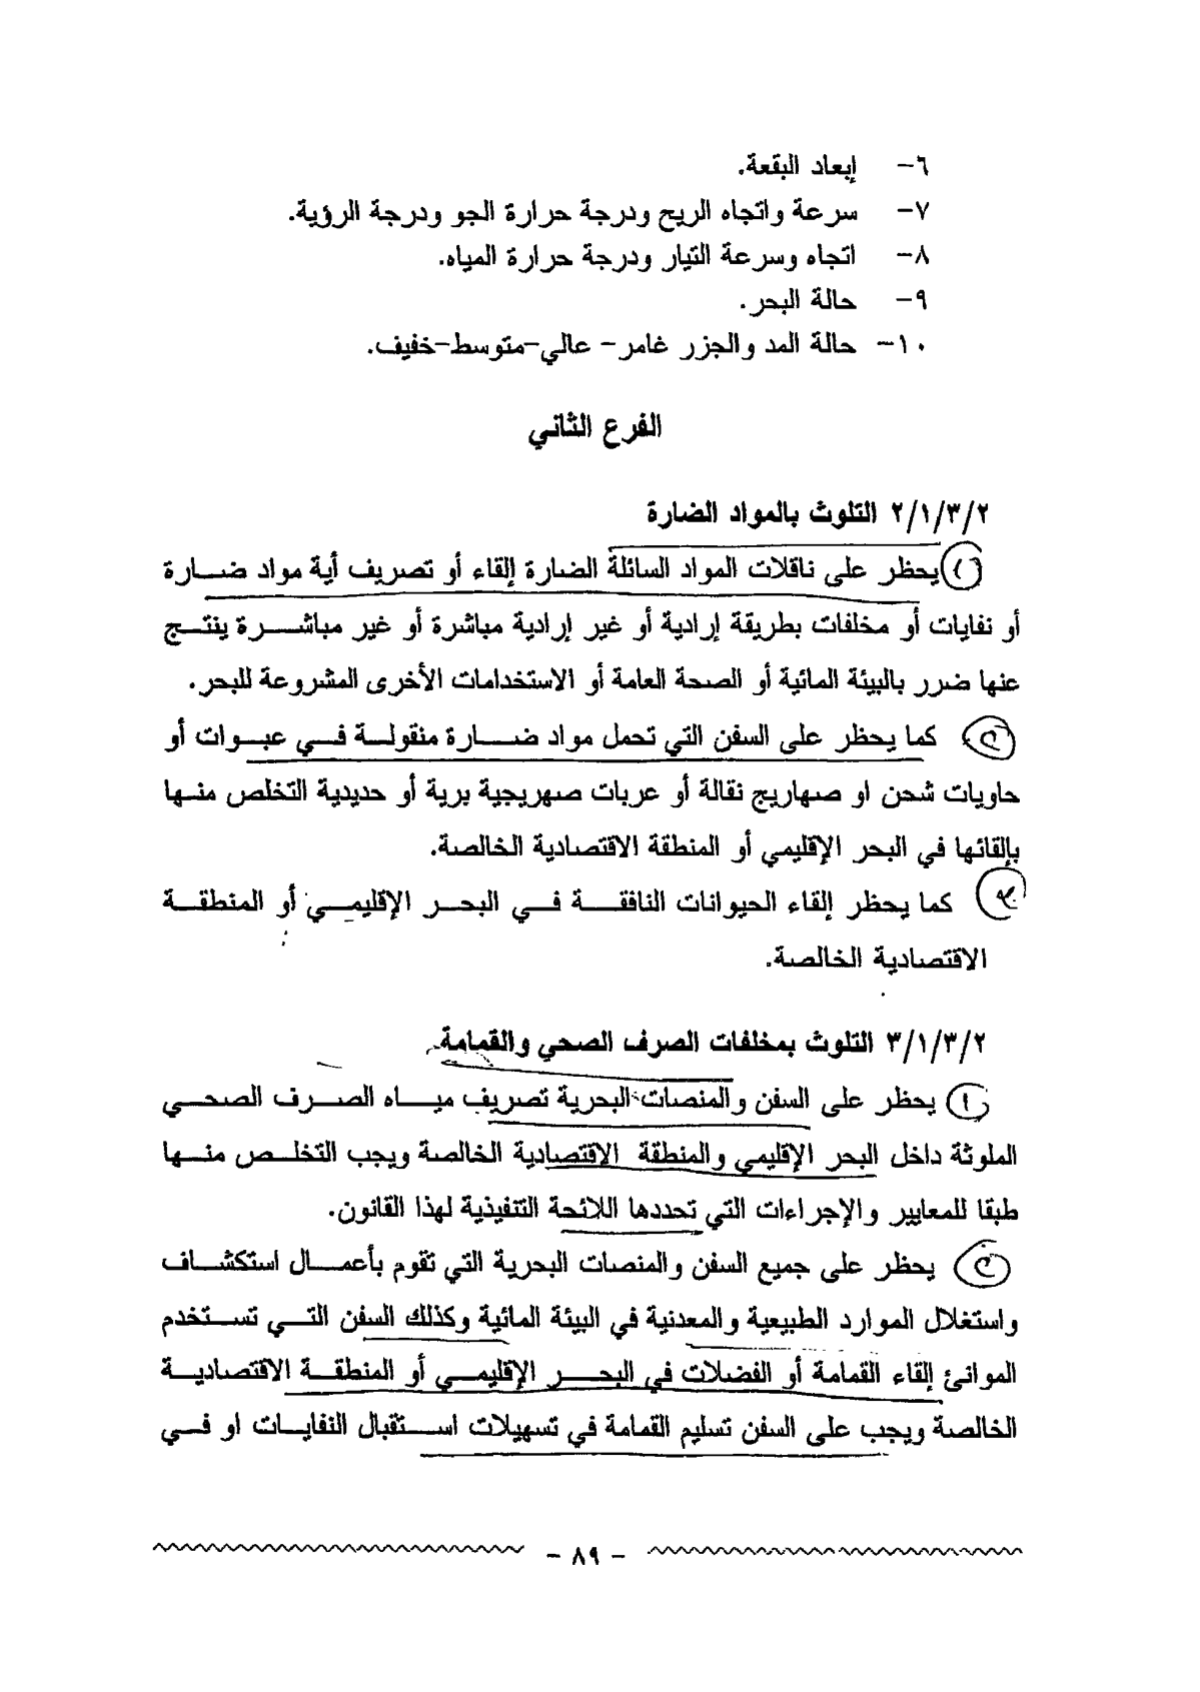 ٦- إبعاد البقعة.
٧- سرعة واتجاه الريح ودرجة حرارة الجو ودرجة الرؤية.
٨- اتجاه وسرعة التيار ودرجة حرارة المياه.
٩- حالة البحر.
١٠- حالة المد والجزر غامر- عالي-متوسط-خفيف.
الفرع الثاني
٢/١/٣/٢ التلوث بالمواد الضارة
(١) يحظر على ناقلات المواد السائلة الضارة إلقاء أو تصريف أية مواد ضارة
أو نفايات أو مخلفات بطريقة إرادية أو غير إرادية مباشرة أو غير مباشرة ينتج
عنها ضرر بالبيئة المائية أو الصحة العامة أو الاستخدامات الأخرى المشروعة للبحر.
(٢) كما يحظر على السفن التي تحمل مواد ضارة منقولة في عبوات أو
حاويات شحن او صهاريج نقالة أو عربات صهريجية برية أو حديدية التخلص منها
بإلقائها في البحر الإقليمي أو المنطقة الاقتصادية الخالصة.
(٣) كما يحظر إلقاء الحيوانات النافقة في البحر الإقليمي أو المنطقة
الاقتصادية الخالصة.
٣/١/٣/٢ التلوث بمخلفات الصرف الصحي والقمامة
(١) يحظر على السفن والمنصات البحرية تصريف مياه الصرف الصحي
الملوثة داخل البحر الإقليمي والمنطقة الاقتصادية الخالصة ويجب التخلص منها
طبقا للمعايير والإجراءات التي تحددها اللائحة التنفيذية لهذا القانون.
(٢) يحظر على جميع السفن والمنصات البحرية التي تقوم بأعمال استكشاف
واستغلال الموارد الطبيعية والمعدنية في البيئة المائية وكذلك السفن التي تستخدم
الموانئ إلقاء القمامة أو الفضلات في البحر الإقليمي أو المنطقة الاقتصادية
الخالصة ويجب على السفن تسليم القمامة في تسهيلات استقبال النفايات او في
- ٨٩ -